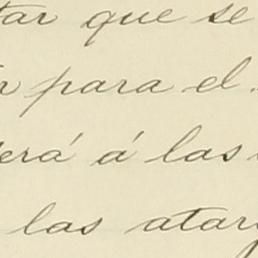 tar que se
para el
erá á las
las atar